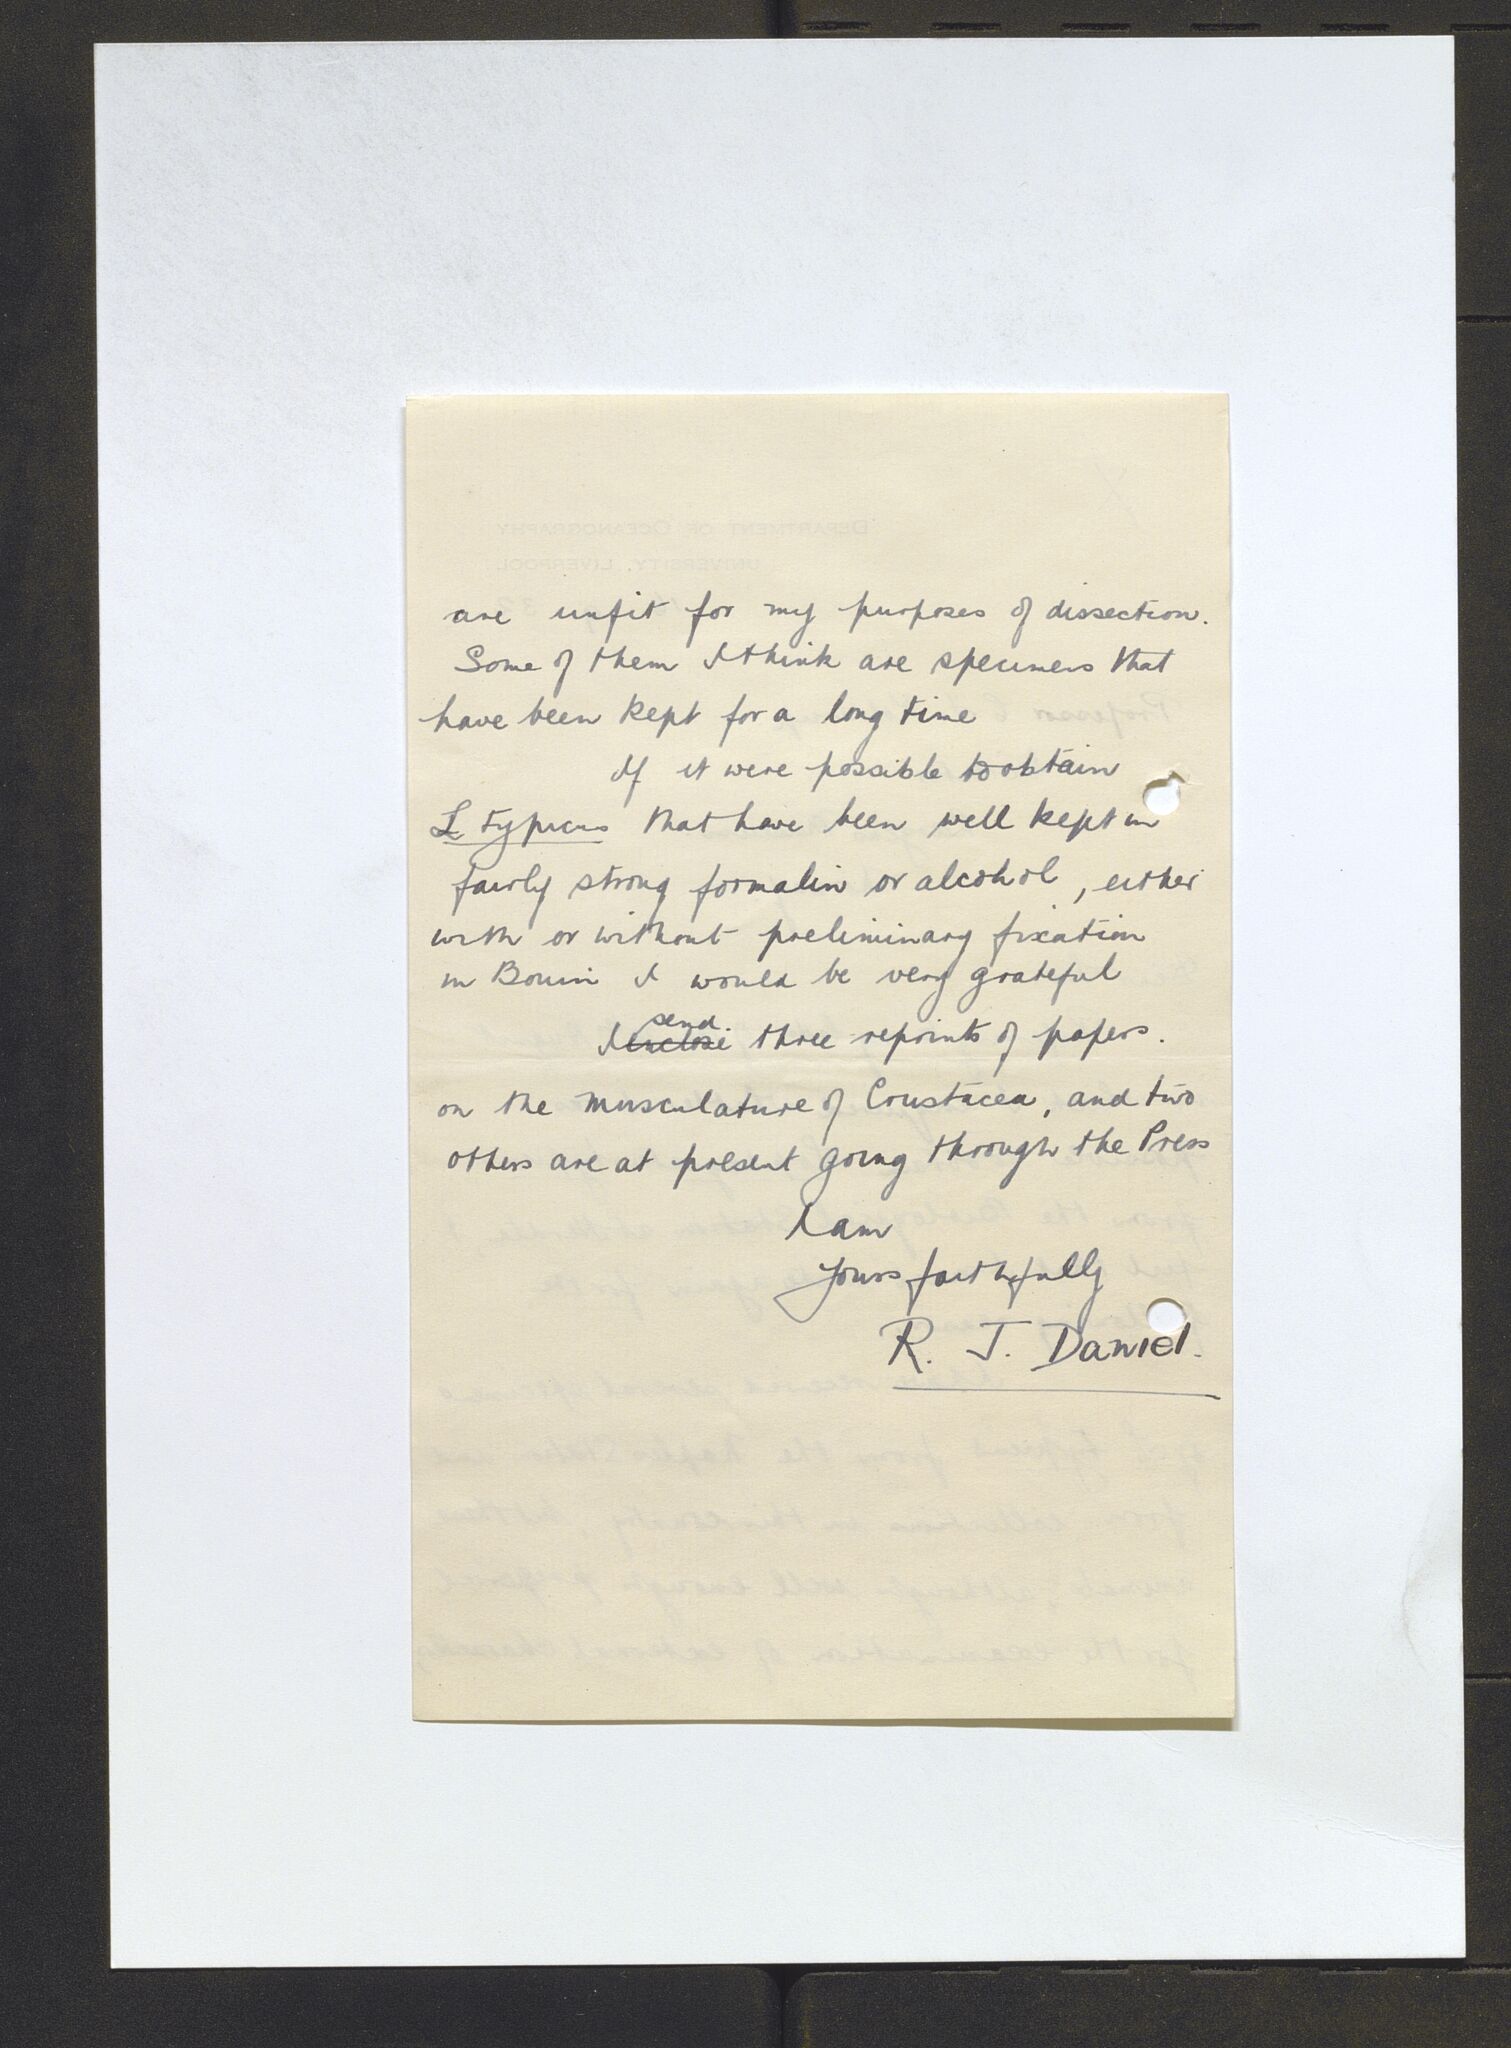 are unfit for my purposes of dissection.
Some of them I think are specimens that
have been kept for a long time
If it were possible to obtain
L typicus that have been well kept in
fairly strong formalin or alcohol, either
with or without preliminary fixation
in Bouin I would be very grateful
send.
I enclose three reprints of papers.
on the musculature of Crustacea, and two
others are at present going through the Press
I am
yours faithfully
R. J. Daniel.